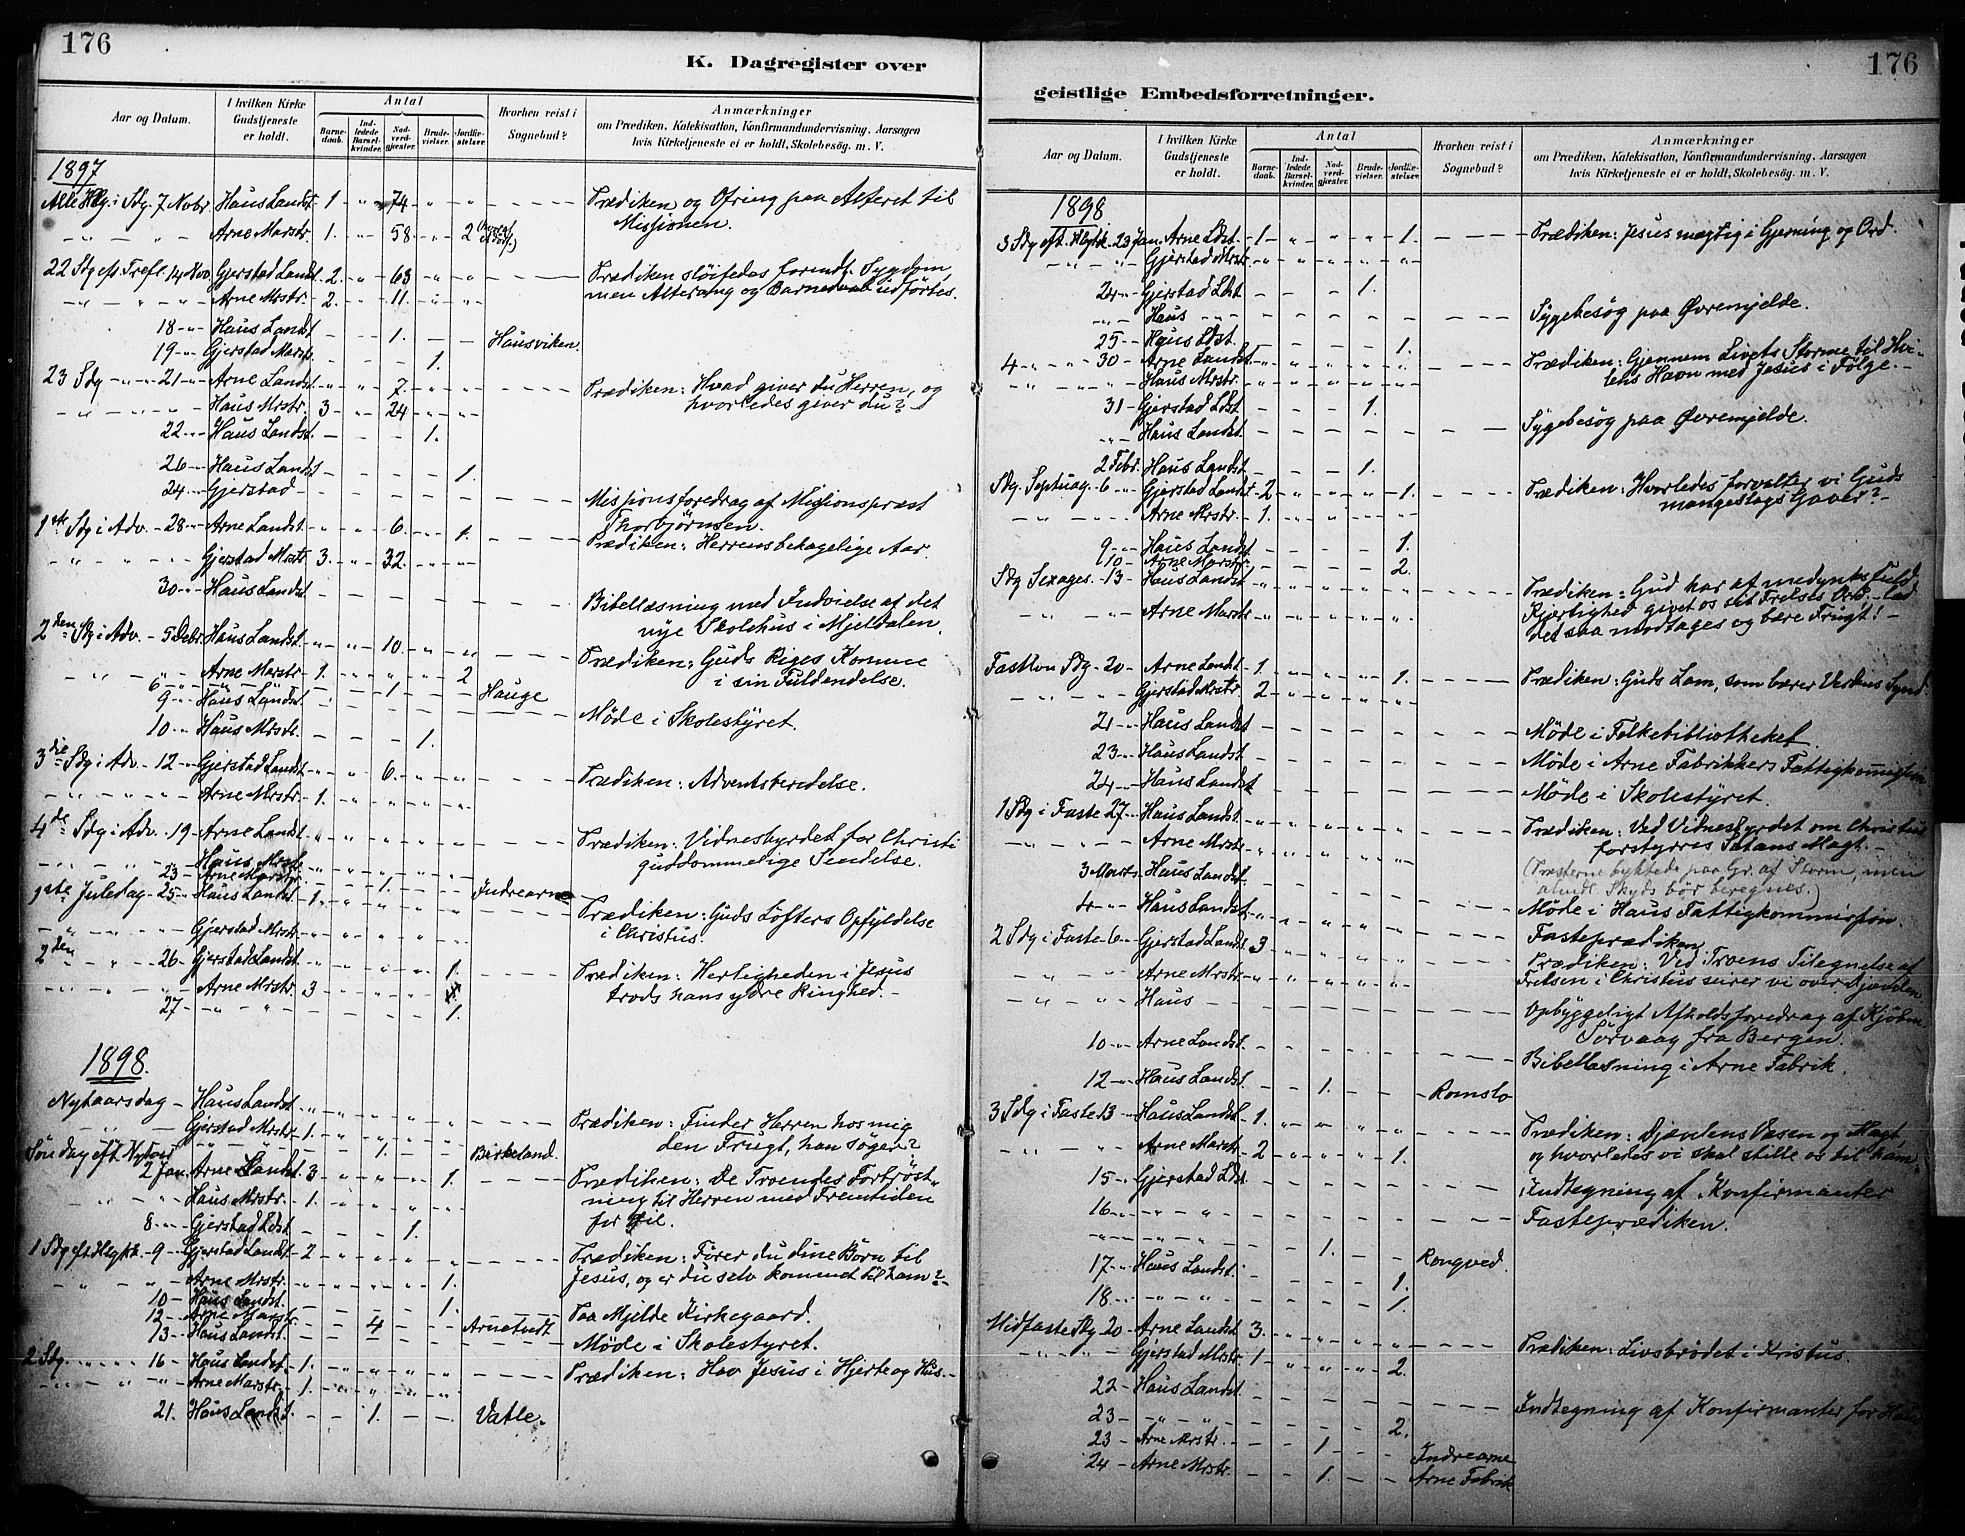 176
K. Dagregister over
Aar og Datum.
I hvilken Kirke Gudstjeneste er holdt.
Antal
Barnedaab.
Indledede Barselkvinder.
Nadverdgjæster.
Brudevielser.
Jordfæstelser.
Hvorhen reist i Sognebud?
Anmærkninger
om Prædiken, Katekisation, Konfirmandundervisning, Aarsagen
hvis Kirketjeneste ei er holdt, Skolebesøg. m. V.
1897
Alle Hlg. i Sdg. 7 Nobr. Haus Landst. 1 - " - 74 - " - " - - - Prædiken og Ofring paa Alteret til
Missionen.
- " - " - " Arne Marstr. 1. - " - 58. - " - 2
22 Sdg. eft. Trefl. 14 Nov. Gjerstad Landst. 2. " - 63 - " - " - - - Prædiken sløifedes formedl. Sygdom,
men Altergang og Barnedaab udførtes.
- " - " - " Arne Mrstr. 2. - " - 11. - " - "
18 - " - Haus Landst - - 1. - - Hausviken.
19 - " - Gjerstad Marstr. - - - 1.
23 Sdg - " - 21 - " - Arne Landst. - " - " - 7. - " - " - - - Prædiken: Hvad giver du Herren, og
hvorledes giver du? -
- " - " - " Haus Mrstr. 3 - " - 24 - " - "
22 - " - Haus Landst. - - - 1.
26 - " - Haus Landst - - - - 1.
24 - " - Gjerstad - - - - - - - Missionsforedrag af Missionspræst
Thorbjørnsen.
1ste Sdg i Adv. - 28 - " - Arne Landst. " - " - 6. - " - 1. - - - Prædiken: Herrens behagelige Aar.
- " - " - " Gjerstad Mrstr. 3. - " - 32. - " - "
30 - " - Haus Landst - - - - - - - Bibellæsning med Indvielse af det
nye Skolehus i Mjeldalen.
2den Sdg i Adv. - 5 Debr. Haus Landst. - " - " - 10. - " - " - - - Prædiken: Guds Riges Komme
i sin Fuldendelse.
- " - " - Arne Marstr. 1. - " - " - " - 2
6 - " - " - " - - - 1. - - Hauge
9 - " - Haus Landst - - - - - - - Møde i Skolestyret.
10 - " - Haus Mrstr. - - - 1.
3die Sdg i Adv. - 12 - " - Gjerstad Landst. - " - " - 6. - " - " - - - Prædiken: Adventsberedelse.
- " - " - " Arne Mrstr. 1. - " - " - " - "
4de Sdg i Adv. - 19 - Arne Landst. - " - " - " - " - " - - - Prædiken: Vidnesbyrdet for Christi
guddommelige Sendelse.
- " - " - " Haus Mrstr. - " - " - " - " - "
23 - Arne Marstr. - - 1. - - Indrearne
1ste Juledag - 25 - " - Haus Landst. 1. - " - " - " - " - - - Prædiken: Guds Løfters Opfyldelse
i Christus.
- " - " - " Gjerstad Mrstr. " - " - " - " - "
2den - " - 26 - Gjerstad Landst. " - " - " - " - 1. - - - Prædiken: Herligheden i Jesus
trods hans ydre Ringhed. -
- " - " - " Arne Mrstr. 3 - " - " - "
27 - " - " - " - - - - 1.
1898.
Nytaarsdag - Haus Landst. " - " - " - " - " - - - Prædiken: Finder Herren hos mig
den Frugt, han søger?
Gjerstad Mrstr. 1. - " - " - " - "
- " - " - - - 1. - - Birkeland.
Søndag eft. Nytaar
2 Jan. Arne Landst. 3 - " - " - " - 1. - - - Prædiken: De Troendes Fortrøst-
ning til Herren med Fremtiden
for Øie.
- " - " - " Haus Mrstr. 1. - " - " - " - "
8 - " - Gjerstad Ldst - - - 1.
1 Sdg. eft. Hlgtk. - 9 - " - Gjerstad Landst. 2 - " - " - " - " - - - Prædiken: Fører du dine Børn til
Jesus, og er du selv kommet til ham? -
- " - " - " Arne Mrstr. - " - " - " - " - 1.
10 - Haus Landst. - - - - 1. - - - Paa Mjelde Kirkegaard.
12 - Arne Marstr. - - 4 - - Arnetvedt
13 - Haus Landst. - - - - - - - Møde i Skolestyret.
2 Sdg. - " - " - 16 - " - Haus Landst. 1. - " - " - " - " - - - Prædiken: Hav Jesus i Hjerte og Hus. -
- " - " - " Arne Marstr. 1. - " - " - " - "
21. Haus Landst. - - 1. - - Vatle.
176
geistlige Embedsforretninger.
Aar og Datum.
I hvilken Kirke Gudstjeneste er holdt.
Antal
Barnedaab.
Indledede Barselkvinder.
Nadverdgjæster.
Brudevielser.
Jordfæstelser.
Hvorhen reist i Sognebud?
Anmærkninger
om Prædiken, Katekisation, Konfirmandundervisning, Aarsagen
hvis Kirketjeneste ei er holdt, Skolebesøg. m. V.
1898
3 Sdg eft. Hlgtk. - 23 Jan. Arne Ldst. 1 - " - " - " - 1. - - - Prædiken: Jesus mægtig i Gjerning og Ord.
- " - " - " Gjerstad Mrstr. " - " - " - " - "
24 - " - Gjerstad Ldst - - - 1.
- " - Haus - " - " - - - - - - - - Sygebesøg paa Øvremjelde.
25 - " - Haus Ldst. - - - - 1.
4 - " - " - 30 - " - Arne Landst. " - " - " - " - " - - - Prædiken: Gjennem Livets Storme til Hvi-
lens Havn med Jesus i Følge. -
- " - " - " Haus Mrstr. - " - " - " - " - "
31 - Gjerstad Ldst. - - - 1.
- " - Haus Landst. - - - - - - - Sygebesøg paa Øvremjelde.
2 Febr. Haus Landst. - - - 1.
Sdg. Septuag. - 6 - " - Gjerstad Landst. 2 - " - " - " - 1. - - - Prædiken: Hvorledes forvalter vi Guds
mangeslags Gaver? -
- " - " - " Arne Mrstr. 1. - " - " - " - "
9 - " - Haus Landst - - - - 1.
10 - Arne Marstr. - - - - 2.
Sdg Sexages. - 13 - " - Haus Landst. - " - " - " - " - " - - - Prædiken: Gud har af medynksfuld
Kjærlighed givet os sit Frelses Ord. - Lad
det saa modtages og bære Frugt! -
- " - " - " Arne Marstr. - " - " - " - " - "
Fastelavn Sdg - 20 - Arne Landst. 1 - " - " - " - 1. - - - Prædiken: Guds Lam, som bærer Verdens Synd.
- " - " - " Gjerstad Mrstr. 2 - " - " - " - "
21 - " - Haus Landst - - - - - - - Møde i Folkebibliotheket.
23 - " - Haus Landst. - - - - - - - Møde i Arne Fabrikkers Fattigkommission.
24 - " - Haus Landst - - - - - - - Møde i Skolestyret.
1 Sdg i Faste 27 - " - Haus Landst. - " - " - " - " - " - - - Prædiken: Ved Vidnesbyrdet om Christus
forstyrres Satans Magt. -
- " - " - " Arne Mrstr. - " - " - " - " - "
(Præsterne byttede paa Gr. af Storm, men
alm. Skyds bør beregnes.)
3 Marts Haus Landst. - - - - - - - Møde i Haus Fattigkommission.
4 - " - Haus Landst. - - - - - - - Fasteprædiken
2 Sdg i Faste - 6 - " - Gjerstad Landst. 3 - " - " - " - " - - - Prædiken: Ved Troens Tilegnelse af
Frelsen i Christus seirer vi over Djævelen.
- " - " - " Arne Mrstr. - " - " - " - " - "
- " - " - " Haus - - - - - - - - Opbyggeligt Afholdsforedrag af Kjøbm.
Sørvaag fra Bergen.
10 - " - Arne Landst. - - - - - - - Bibellæsning i Arne Fabrik.
12 - " - Haus Landst. - - 1. - - Romslo
3 Sdg i Faste 13 - " - Haus Landst. 1. - " - " - " - " - - - Prædiken: Djævelens Væsen og Magt
og hvorledes vi skal stille os til ham.
- " - " - " Arne Marstr. 2 - " - " - " - 1.
15 - " - Gjerstad Ldst. - - - - - - - Indtegning af Konfirmanter
16 - " - " - " - - - - - - - Fasteprædiken.
- " - " - " - " - - 1. - - Rongved.
17 - " - Haus Landst. - - - - 1.
18 - " - " - " - - - - 1.
Midfaste Sdg - 20 - Arne Landst. 3. - " - " - " - " - - - Prædiken: Livsbrødet i Kristus.
- " - " - " Gjerstad Mrstr. 1 - " - " - " - 2.
22 - Haus Landst. - - - - - - - Indtegning af Konfirmanter for Haus
23 - " - " - " - - - - 2.
23 - Arne Mrstr. - - 1 - - Indrearne
24 - Arne Mrstr. - - 1. - - Arne Fabrik